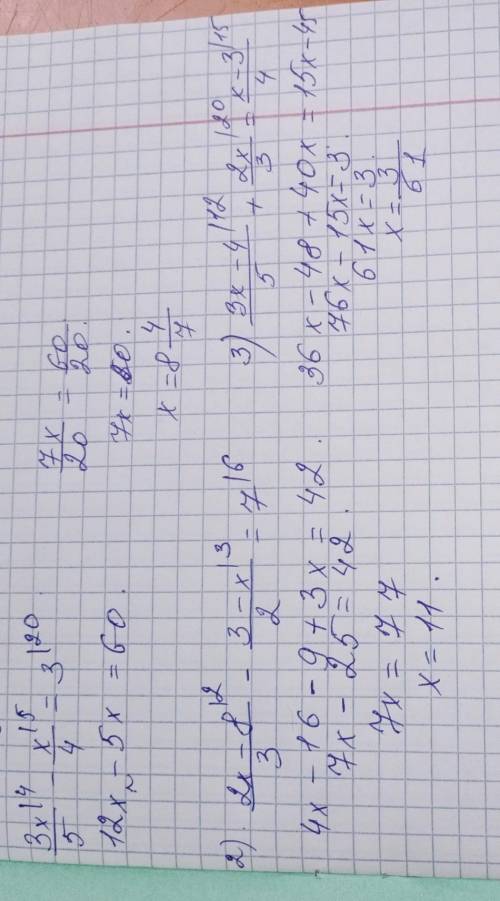 3x|4/5 − x|5/4 = 3|20.
12x − 5x = 60.
7x/20 = 60/20.
7x = 60.
x = 8 4/7
2). 2x − 8|2/3 − 3 − x|3/2 = 7|6
4x − 16 − 9 + 3x = 42.
7x − 25 = 42.
7x = 77
x = 11.
3) 3x − 4|12/5 + 2x|20/3 = x − 3|15/4
36x − 48 + 40x = 15x − 45
76x − 15x = 3.
61x = 3.
x = 3/61